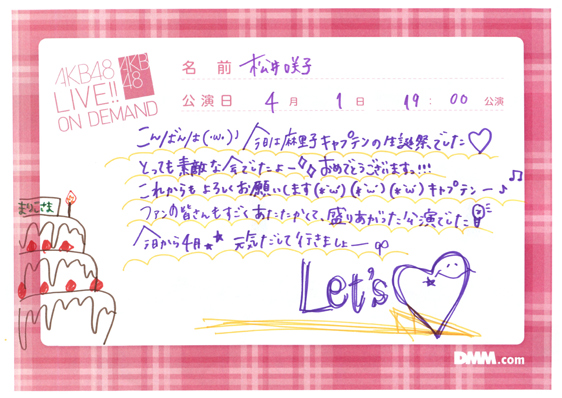 AKB48
LIVE!!
ON DEMAND
AKB
48
名 前 松井咲子
公演日 4月 1日 19:00 公演
こんばんは(・ω・)ノ 今日は麻里子キャプテンの生誕祭でした♡
とっても素敵な会でしたよー おめでとうございますっ!!!
これからもよろしくお願いします(*´ω`)(*´ω`)(*´ω`)キャプテンー♪♫
まりこさま
ファンの皆さんもすごくあたたかくて、盛りあがった公演でした
今日から4月★★ 元気だして行きましょー
Let's
DMM.com